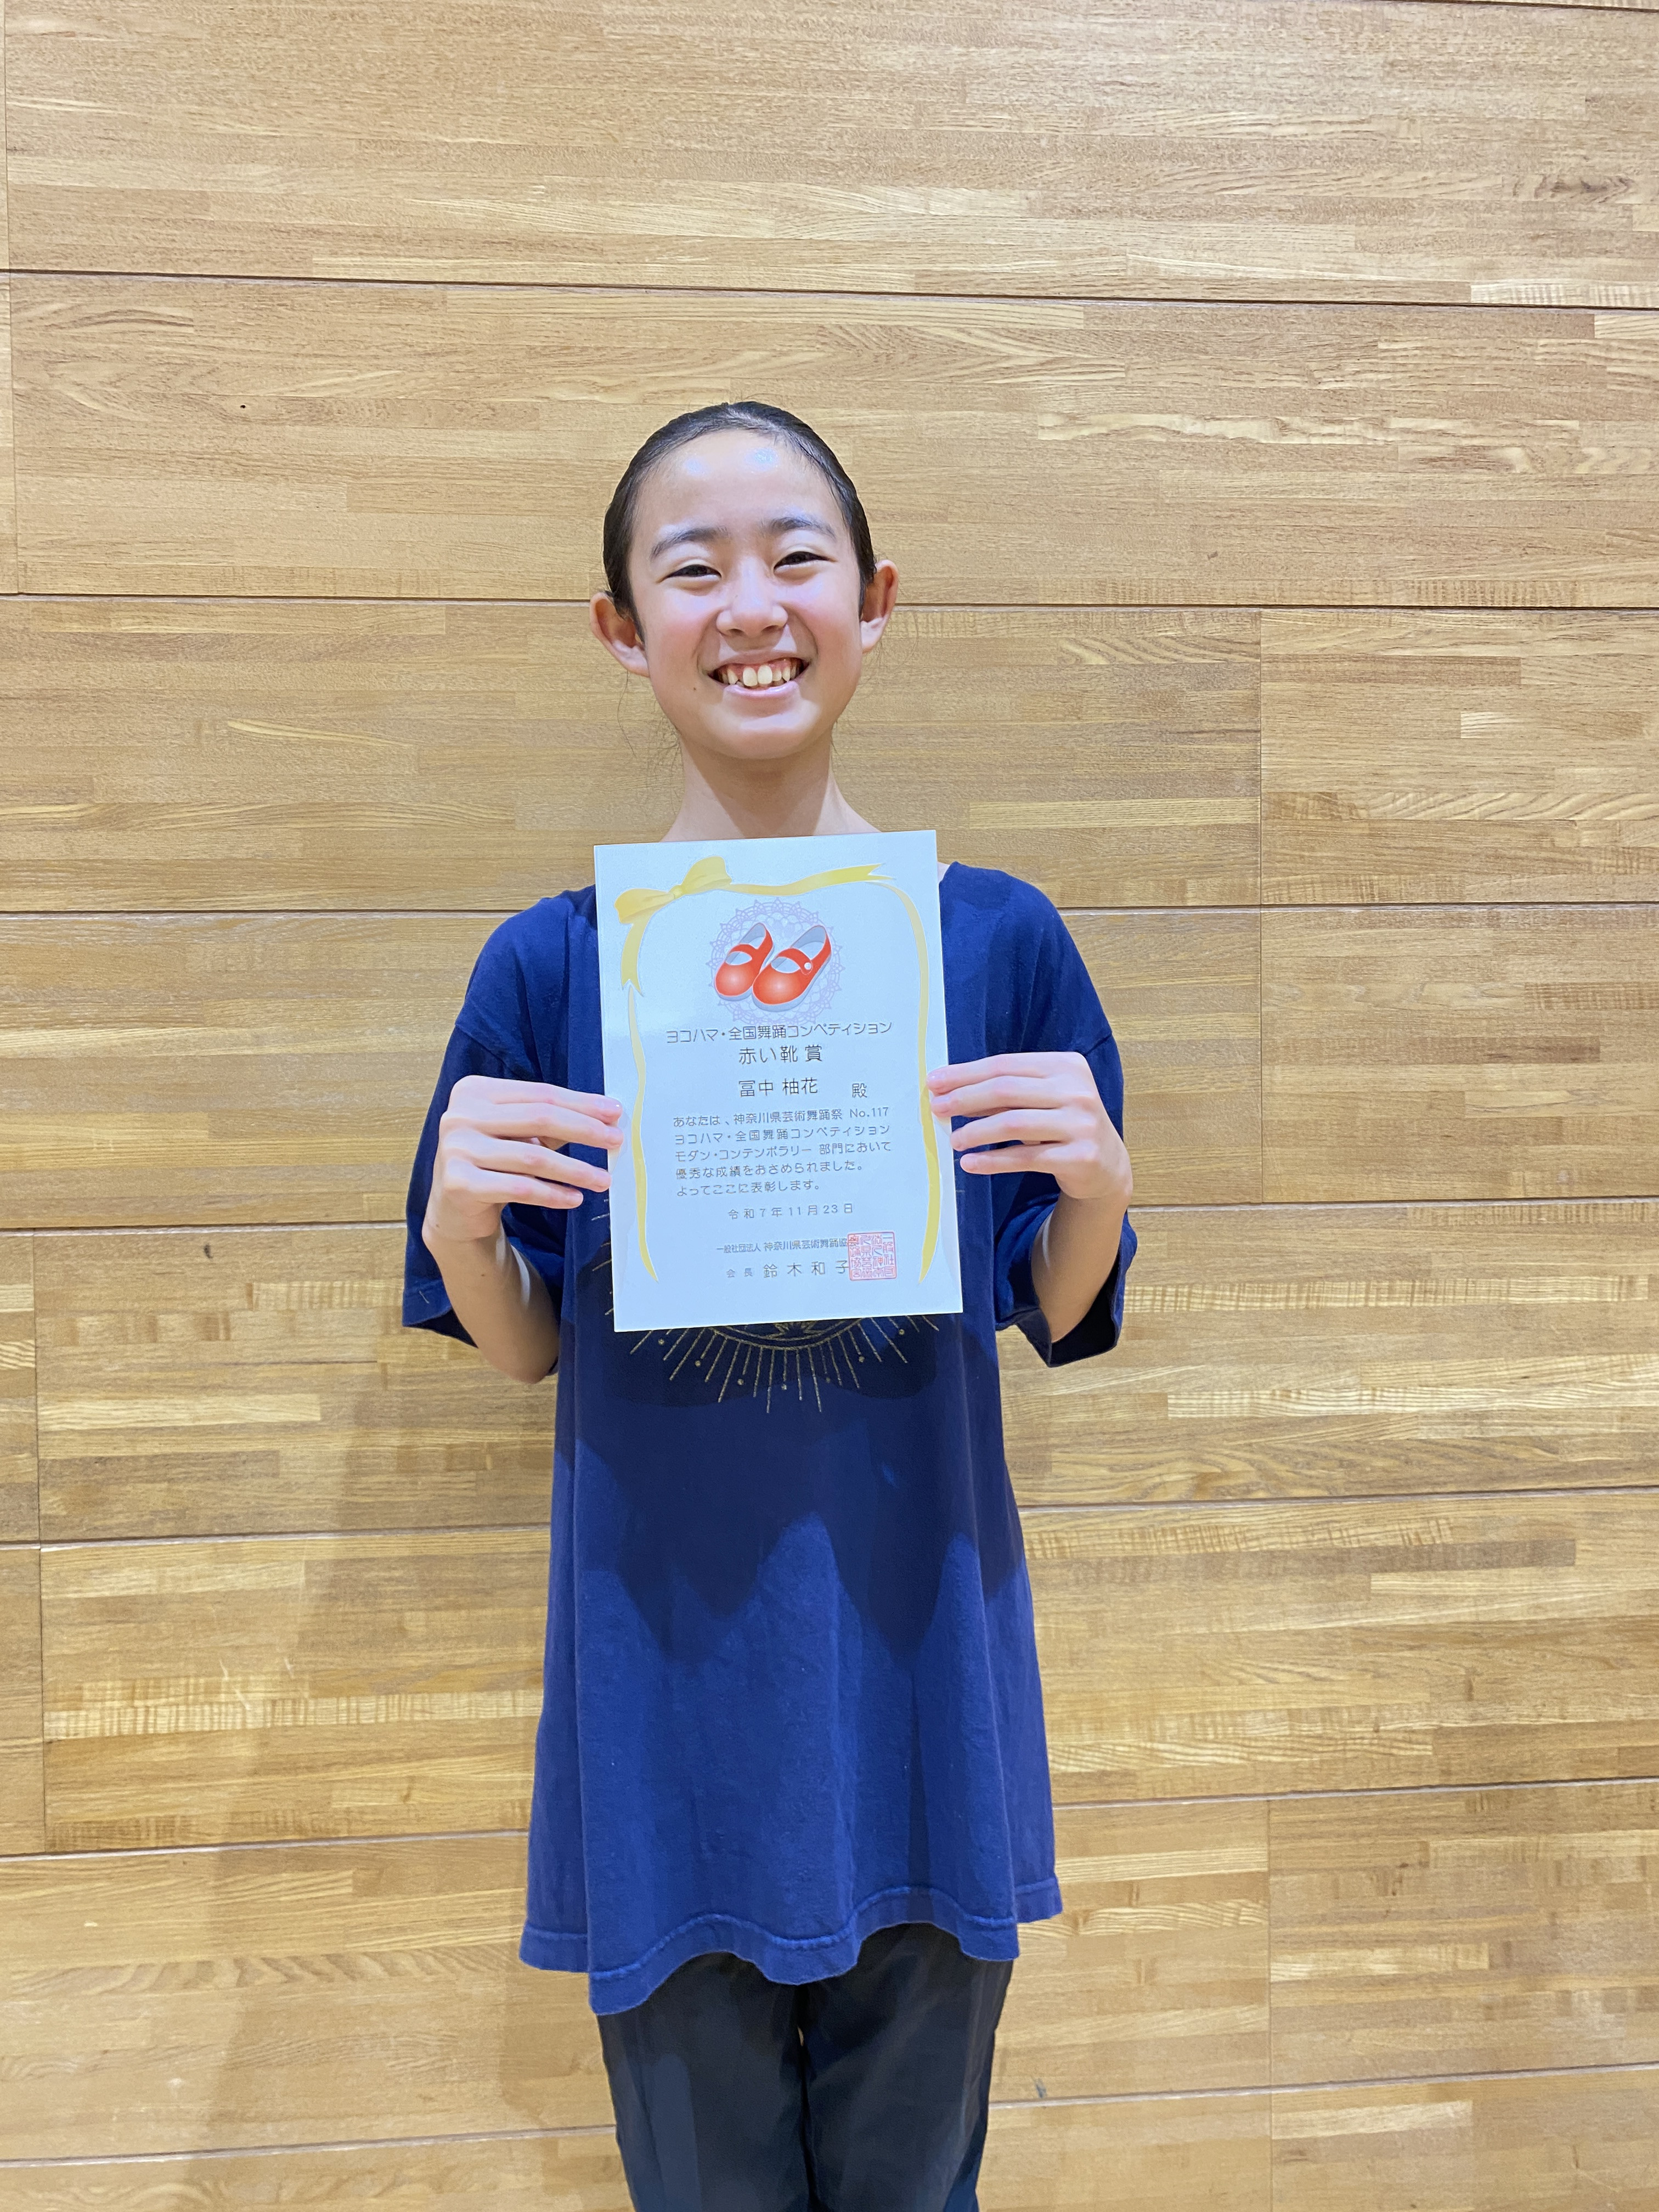 ヨコハマ・全国舞踊コンペティション
赤い靴 賞
冨中 柚花 殿
あなたは、神奈川県芸術舞踊祭 No.117
ヨコハマ・全国舞踊コンペティション
モダン・コンテンポラリー 部門において
優秀な成績をおさめられました。
よってここに表彰します。
令和7年11月23日
一般社団法人 神奈川県芸術舞踊協会
会長 鈴木和子